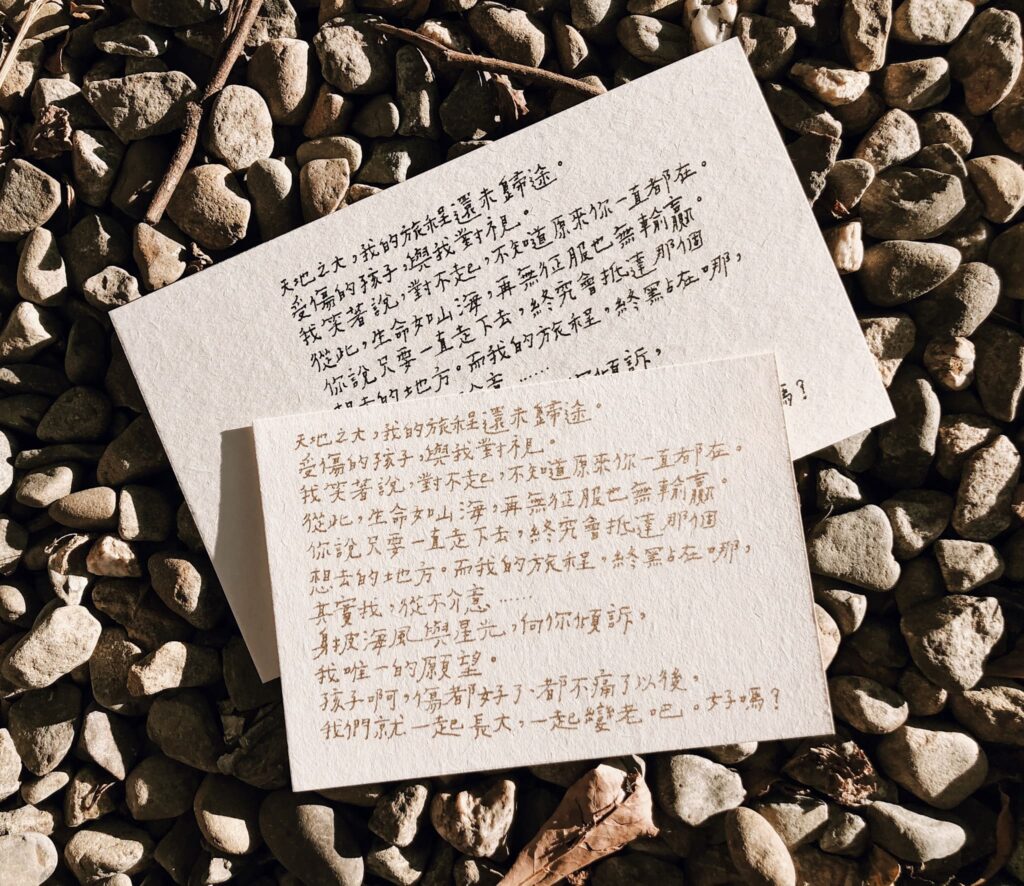 天地之大，我的旅程還未歸途。
受傷的孩子，與我對視。
我笑著說，對不起，不知道原來你一直都在。
從此，生命如山海，再無征服也無輸贏。
你說只要一直走下去，終究會抵達那個
想去的地方。而我的旅程，終點在哪，
意……
傾訴，
嗎？
天地之大，我的旅程還未歸途。
受傷的孩子，與我對視。
我笑著說，對不起，不知道原來你一直都在。
從此，生命如山海，再無征服也無輸贏。
你說只要一直走下去，終究會抵達那個
想去的地方。而我的旅程，終點在哪，
其實我，從不介意……
身披海風與星光，向你傾訴，
我唯一的願望。
孩子啊，傷都好了、都不痛了以後，
我們就一起長大，一起變老吧。好嗎？